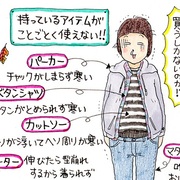 持っているアイテムが
ことごとく使えない!!
買うしかないのか!?
パーカー
チャックがしまらず寒い
ボタンシャツ
ボタンがとめられず寒い
カットソー
りが浮いてヘソ周りが寒い
ーター 伸びたら型崩れ
するから着られず
マタ